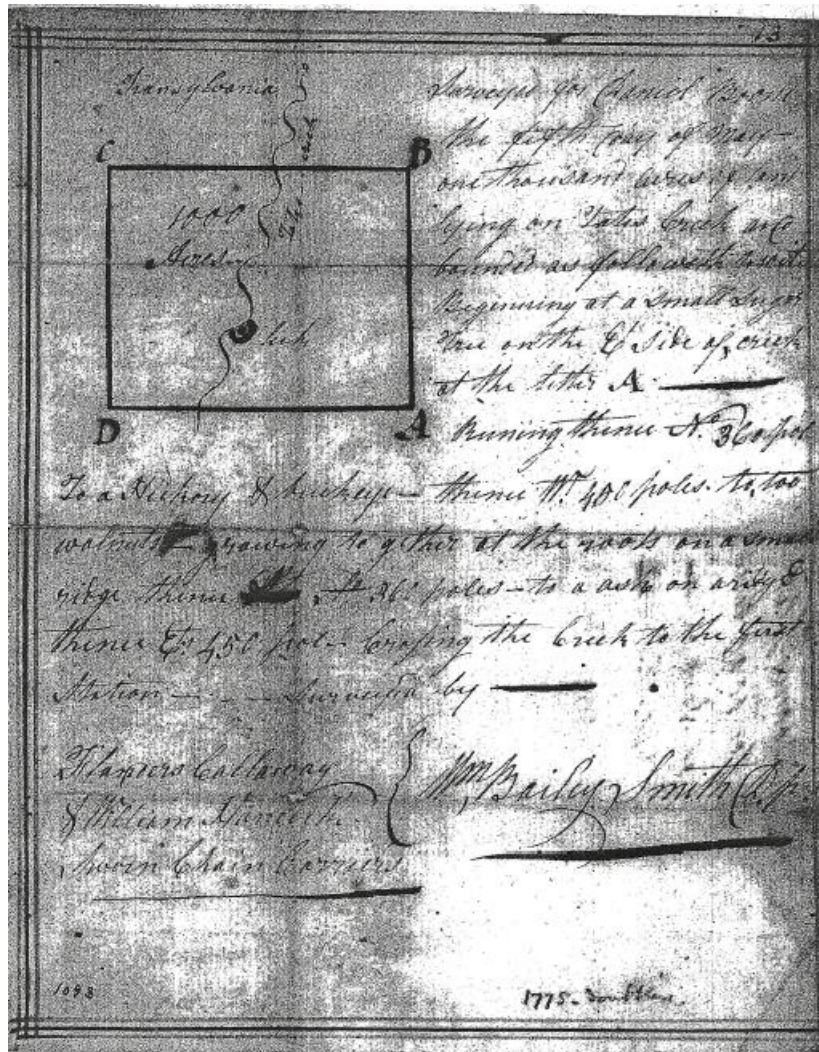 13
Transylvania
Surveyed for Daniel Boone
the fifth Day of May —
one thousand acres of Lan
lying on Tates Creek and
bounded as followeth towit
Beginning at a small Sugar
Tree on the Et side of creek
at the letter A
C
B
1000
Acres
Lick
D
A
Runing thence No 360 pol
To a Hickory & buckeye — thence Wt 400 poles. to too
walnuts — growing to gether at the roots on a small
ridge thence 360 poles — to a ash on a ridg
thence Et 450 pol — Crossing the Creek to the first
Station — Surveyd by
Flanders Callaway
& William Hancock
Sworn Chain Carriers
Wm Bailey Smith
1093
1775 - Doubtless